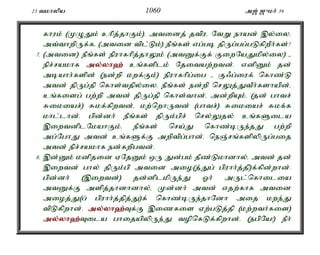 23 வமாலிய 1060 அஜ் ஜுமர் 39
காரம் (முழுதும் உரித்தாகும்) அவனைத் தவிர வேறு நாயன் இல்லை.
அவ்வாறிருக்க, (அவனை விட்டும்) நீங்கள் எப்படி திருப்பப்படுகிறீர்கள்?
7. (அவனை) நீங்கள் நிராகரித்தாலும் (அவனுக்குக் குறையேதுமில்லை) _
நிச்சயமாக அல்லாஹ் உங்களிடம் தேவையற்றவன். எனினும் தன்
அடியார்களின் (நன்றி மறக்கும்) நிராகரிப்பை _ குஃப்ரைக் கொண்டு
அவன் திருப்தி கொள்வதில்லை. நீங்கள் நன்றி செலுத்துவீர்களாயின்,
உங்களைப் பற்றி அவன் திருப்தி கொள்வான். அன்றியும், (தன் பாவச்
சுமையைச்) சுமக்கிறவன், மற்றொருவன் (பாவச்) சுமையைச் சுமக்க
மாட்டான். பின்னர் நீங்கள் திரும்பிச் செல்லுதல் உங்களுடைய
இறைவனிடமேயாகும். நீங்கள் செய்து கொண்டிருந்தது பற்றி
அப்போது அவன் உங்களுக்கு அறிவிப்பான். நெஞ்சங்களிலிருப்பதை
அவன் நிச்சயமாக நன்கறிபவன்.
8. இன்னும் மனிதனை ஏதேனும் ஒரு துன்பம் தீண்டுமானால், அவன் தன்
இறைவன் பால் திரும்பி அவனை அழை(த்துப் பிரார்த்தி)க்கின்றான்.
பின்னர் (இறைவன்) தன்னிடமிருந்து ஓர் அருட்கொடையை
அவனுக்கு அளித்தானானால், முன்னர் அவன் எதற்காக அவனை
அழைத்து(ப் பிரார்த்தித்து)க் கொண்டிருந்தானோ அதை மறந்து
விடுகிறான். அல்லாஹ்வுக்கு இணைகளை ஏற்படுத்தி (மற்றவர்களை)
அல்லாஹ்வுடைய பாதையிலிருந்து வழிகெடுக்கிறான். (நபியே) நீர்